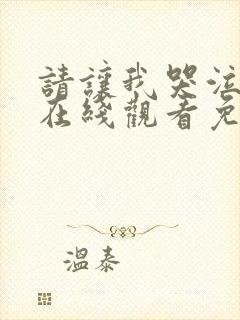 請讓我哭泣
在綫觀看免
溫泰